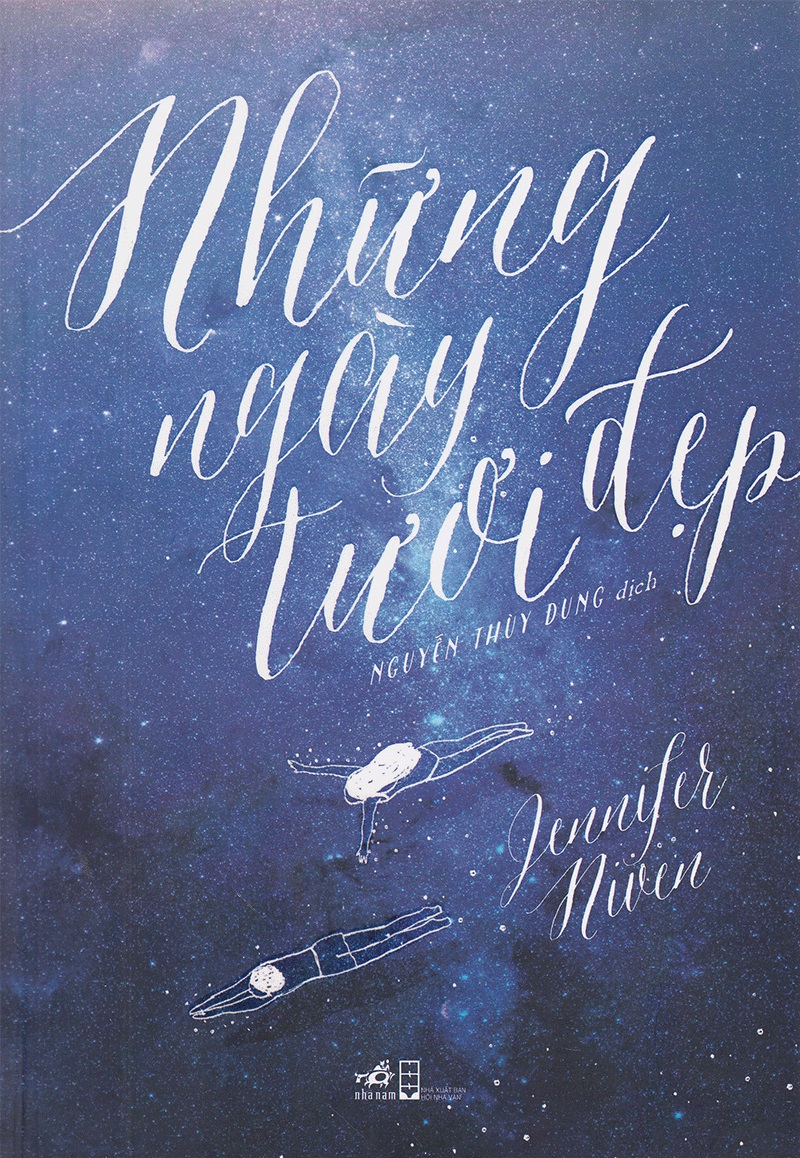 Những
ngày
tươi đẹp
NGUYỄN THÙY DUNG dịch
Jennifer
Niven
nhã nam
NHÀ XUẤT BẢN
HỘI NHÀ VĂN